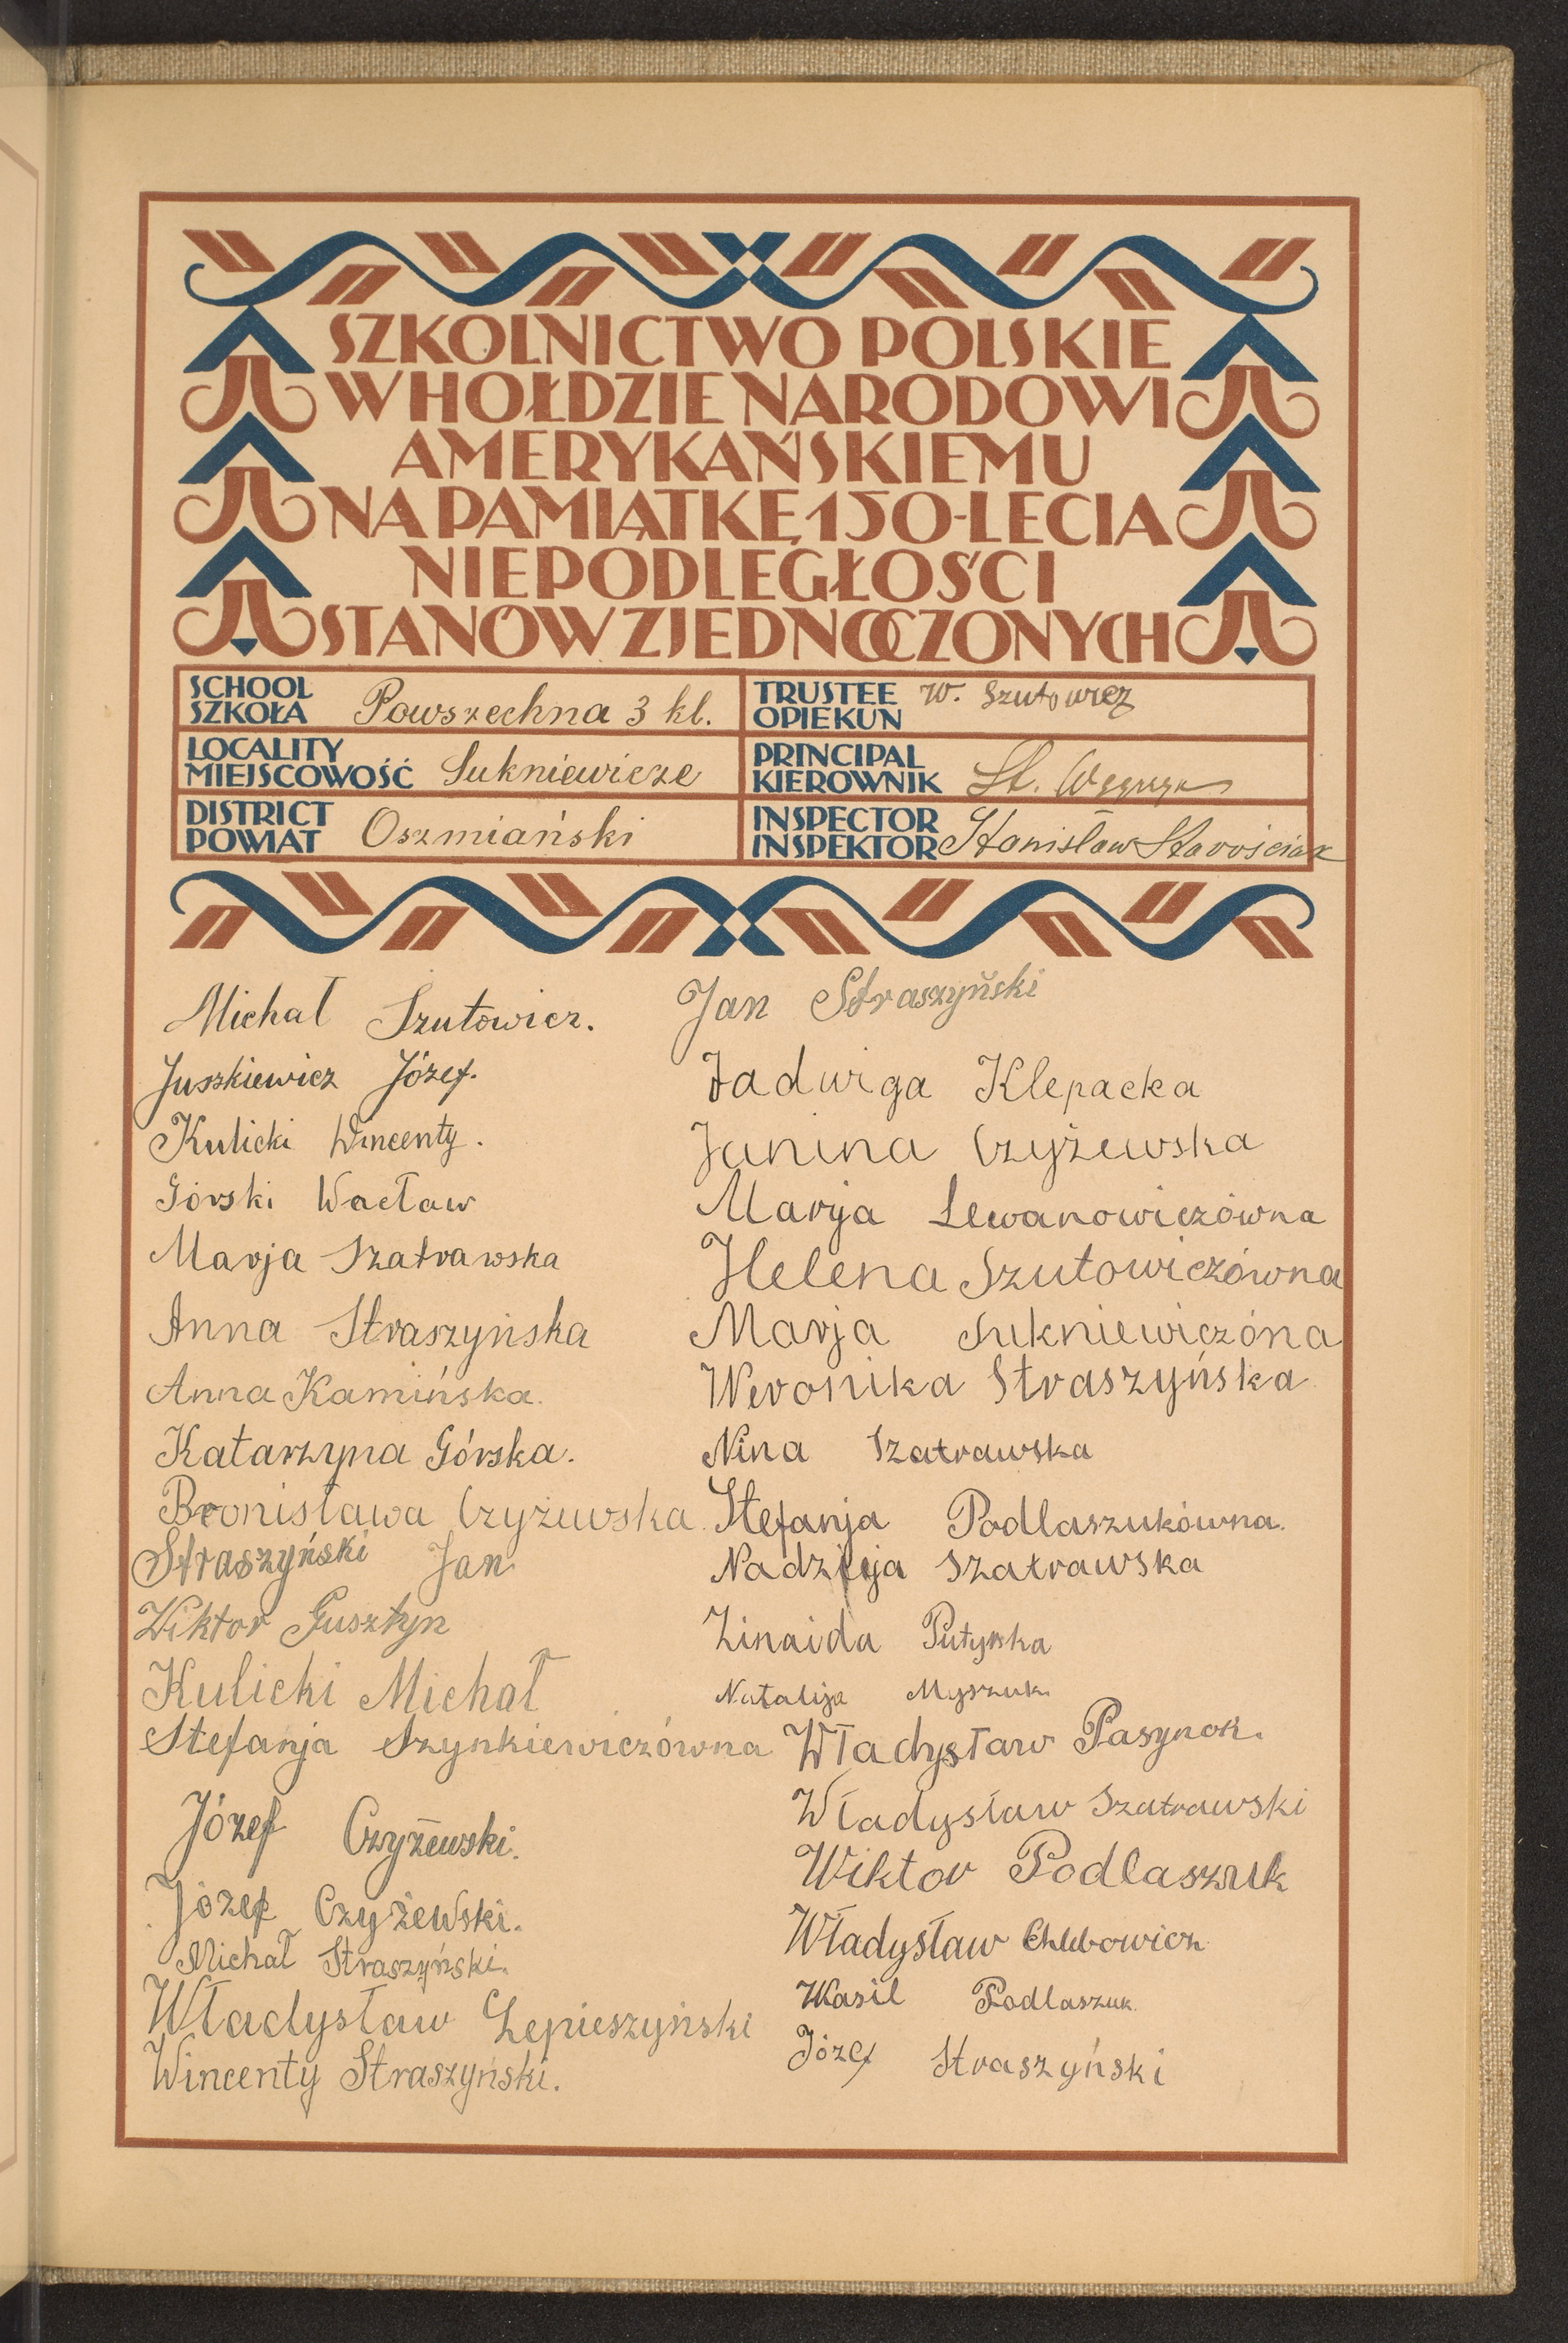 SZKOLNICTWO POLSKIE
W HOŁDZIE NARODOWI
AMERYKAŃSKIEMU
NA PAMIĄTKĘ 150-LECIA
NIEPODLEGŁOŚCI
STANÓW ZJEDNOCZONYCH
SCHOOL
SZKOŁA Powszechna 3 kl.
LOCALITY
MIEJSCOWOŚĆ Sukniewicze
DISTRICT
POWIAT Oszmiański
TRUSTEE
OPIEKUN W. Szutowicz
PRINCIPAL
KIEROWNIK St.
INSPECTOR
INSPEKTOR Stanisław Starościak
Michał Szutowicz.
Juszkiewicz Józef.
Kulicki Wincenty.
Górski Wacław
Marja Szatrawska
Anna Straszyńska
Anna Kamińska.
Katarzyna Górska.
Bronisława Czyżewska.
Straszyński Jan
Wiktor Gusztyn
Kulicki Michał
Stefanja Szynkiewiczówna
Józef Czyżewski.
Józef Czyżewski.
Michał Straszyński.
Władysław Lepieszyński
Wincenty Straszyński.
Jan Straszyński
Jadwiga Klepacka
Janina Czyżewska
Marja Lewanowiczówna
Helena Szutowiczówna
Marja Sukniewiczóna
Weronika Straszyńska
Nina Szatrawska
Stefanja Podlaszukówna.
Nadzieja Szatrawska
Zinaida Putyrska
Natalija Myszuk
Władysław Pasynok.
Władysław Szatrawski
Wiktor Podlaszuk
Władysław Chlebowicz
Wasil Podlaszuk.
Józef Straszyński